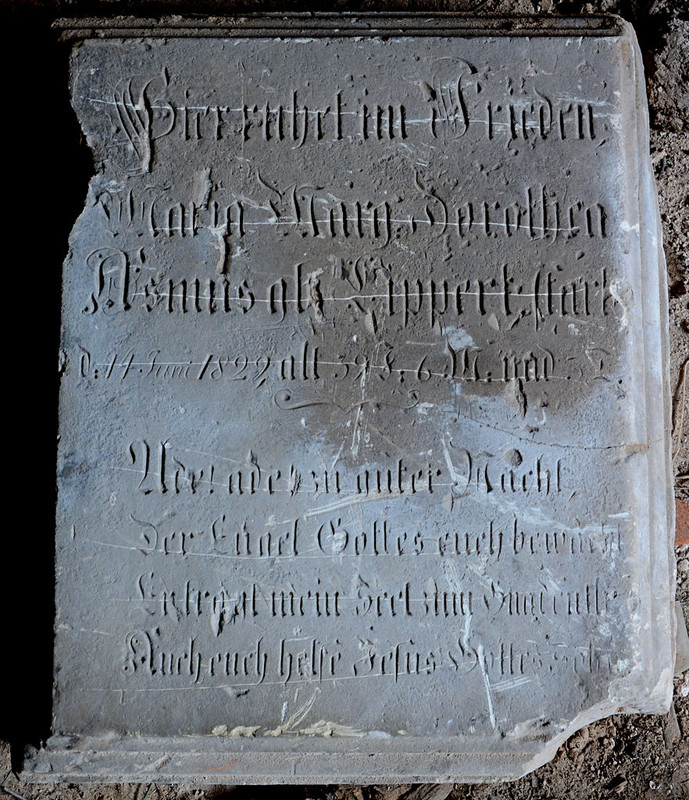 Hier ruhet im Frieden,
Maria Marg: Dorothea
Asmus gb: Lippert, starb
d: 14 Juni 1829, alt 39 J. 6 M. und 3 T
Ade! ade! zu guter Nacht,
Der Engel Gottes euch bewacht
Er trägt mein Seel zum
Auch euch helfe Jesus Gottes Sohn